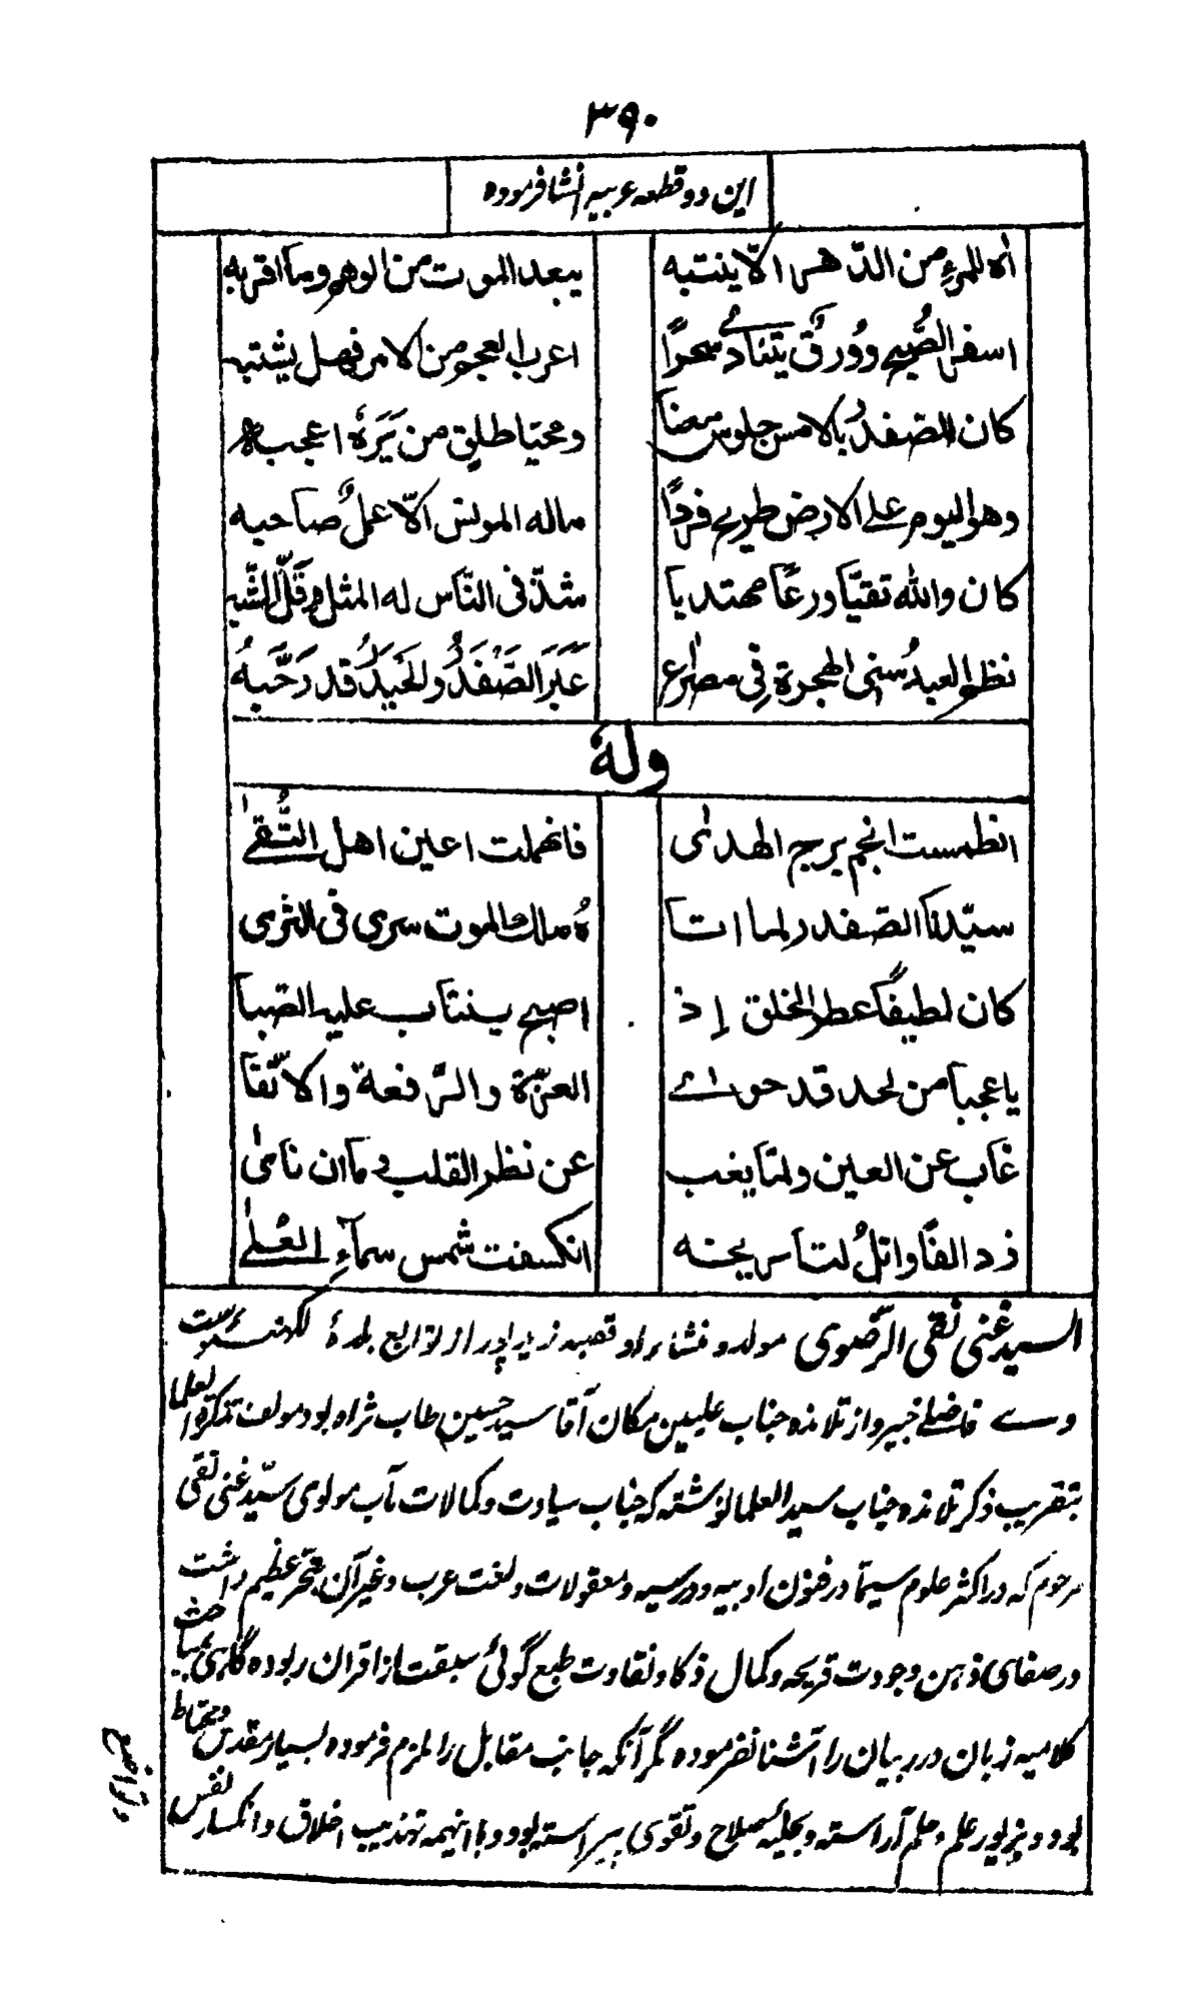 ۳۹۰
این دو قطعه عربیه انشا فرموده
اٰه للمرءِ من الدّهر الّا ینتبه یبعد الموت من الوهم وما اقربه
اسفر الصُّبح ووُرقٌ یتنادیٰ سحرًا اعرب العجم من الامر فهل یشتبه
کان للصفدرُ بالامس جلوس ومحیّا طلیق من یَرَهٗ اعجبه
وهو الیوم علے الارض طریح فردًا ماله المونس الّا عملٌ صاحبه
کان والله تقیّا ورعًا مهتدیا شذّ فی النّاس له المثل وقَلَّ الشّبه
نظم العبدُ سنی الهجرة فِی مصراعٍ عَبَرَ الصَّفْدَرُ والحَیدَرُ قد رَحَّبهُ
ولهٗ
انطمست انجم برج الهدیٰ فانهملت اعین اهل التُّقیٰ
سیّدنا الصّفدر لما اتا هُ ملك الموت سری فی الثری
کان لطیفًا عطر الخلق إذ اصبح ینتاب علیه الصّبا
یا عجبا من لحد قد حواے العزّة والرّفعة والاتّقا
غاب عن العین ولمّا یغب عن نظر القلب وما ان نایٰ
زد الفًا واتلُ لتاریخه انکسفت شمس سماءِ العُلیٰ
السید غنی نقی الرّضوی مولد و منشا براو قصبه زیدپور از توابع بلدهٔ لکهنؤست
وے فاضلے خبیر و از تلامذه جناب علیین مکان آقا سید حسین طاب ثراه بود مولف تذکرة العلما
بتقریب ذکر تلامذه جناب سید العلما نوشته که جناب سیادت و کمالات مآب مولوی سیّد غنی نقی
مرحوم که در اکثر علوم سیّما در فنون ادبیه و درسیه و معقولات و لغت عرب و غیر آن تبحّر عظیم داشت
در صفای ذهن و جودت قریحه و کمال ذکا و نقاوت طبع گوئی سبقت از اقران ربوده گاهی بمباحث
کلامیه زبان در بیان را آشنا نفرموده مگر آنکه جانب مقابل را ملزم فرموده بسیار مقدس و محتاط
بود و بزیور علم و حلم آراسته و بحلیهٔ صلاح و تقوی پیراسته بود و با اینهمه تهذیب اخلاق و انکسار نفس
و تواضع